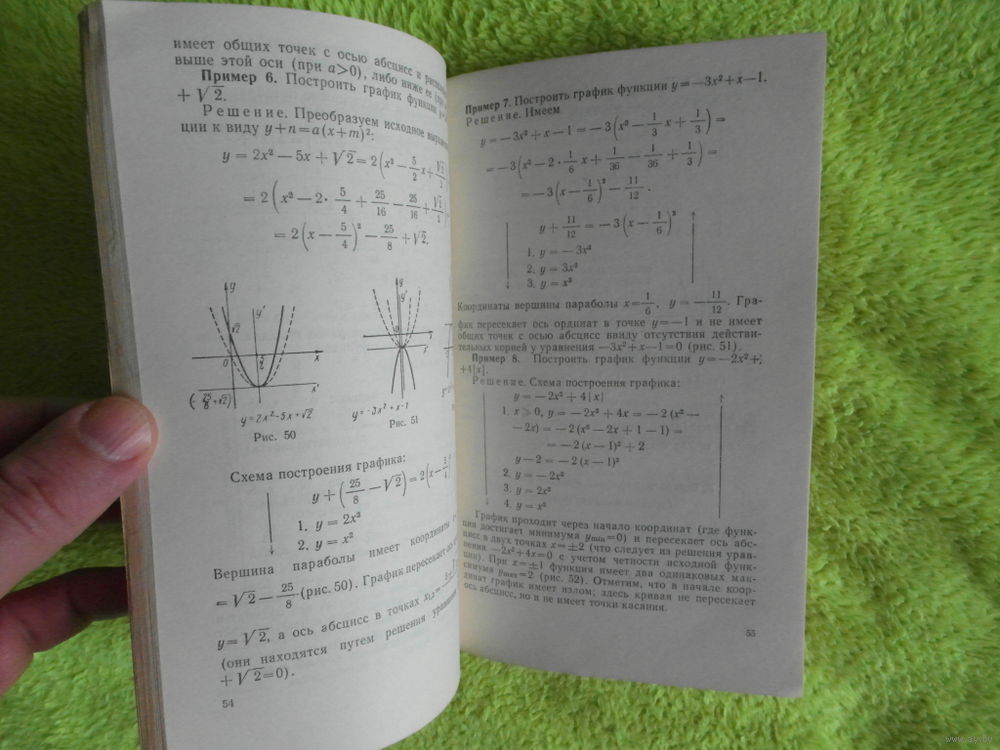 имеет общих точек с осью абсцисс и
выше этой оси (при a>0), либо ниже ее
Пример 6. Построить график функции
+ √2.
Решение. Преобразуем исходное
ции к виду y+n=a(x+m)²:
y = 2x² — 5x + √2 = 2(x² — 5/2 x + √2/2
= 2(x² — 2· 5/4 + 25/16 — 25/16 + √2/2
= 2(x — 5/4)² — 25/8 + √2.
y
y'
√2
0
x
x'
(-25/8+√2)
y=2x²-5x+√2
Рис. 50
y
y'
x
x'
y=-3x²+x-1
Рис. 51
Схема построения графика:
y + (25/8 — √2) = 2(x —
1. y = 2x²
2. y = x²
Вершина параболы имеет координаты
= √2 — 25/8 (рис. 50). График пересекает
y = √2, а ось абсцисс в точках
(они находятся путем решения
+ √2=0).
54
Пример 7. Построить график функции y=—3x²+x—1.
Решение. Имеем
y = — 3x² + x — 1 = — 3(x² — 1/3 x + 1/3) =
= —3(x² — 2 · 1/6 x + 1/36 — 1/36 + 1/3) =
= — 3(x — 1/6)² — 11/12.
y + 11/12 = — 3(x — 1/6)²
1. y = — 3x²
2. y = 3x²
3. y = x²
Координаты вершины параболы x = 1/6, y = — 11/12. Гра-
фик пересекает ось ординат в точке y=—1 и не имеет
общих точек с осью абсцисс ввиду отсутствия действи-
тельных корней у уравнения —3x²+x—1=0 (рис. 51).
Пример 8. Построить график функции y=—2x²+
+4|x|.
Решение. Схема построения графика:
y = — 2x² + 4|x|
1. x ⩾ 0, y = — 2x² + 4x = — 2(x² —
— 2x) = — 2(x² — 2x + 1 — 1) =
= — 2(x — 1)² + 2
y — 2 = — 2(x — 1)²
2. y = — 2x²
3. y = 2x²
4. y = x²
График проходит через начало координат (где функ-
ция достигает минимума y min=0) и пересекает ось абс-
цисс в двух точках x=±2 (что следует из решения урав-
нения —2x²+4x=0 с учетом четности исходной функ-
ции). При x=±1 функция имеет два одинаковых мак-
симума y max=2 (рис. 52). Отметим, что в начале коор-
динат график имеет излом; здесь кривая не пересекает
ось абсцисс, но и не имеет точки касания.
55